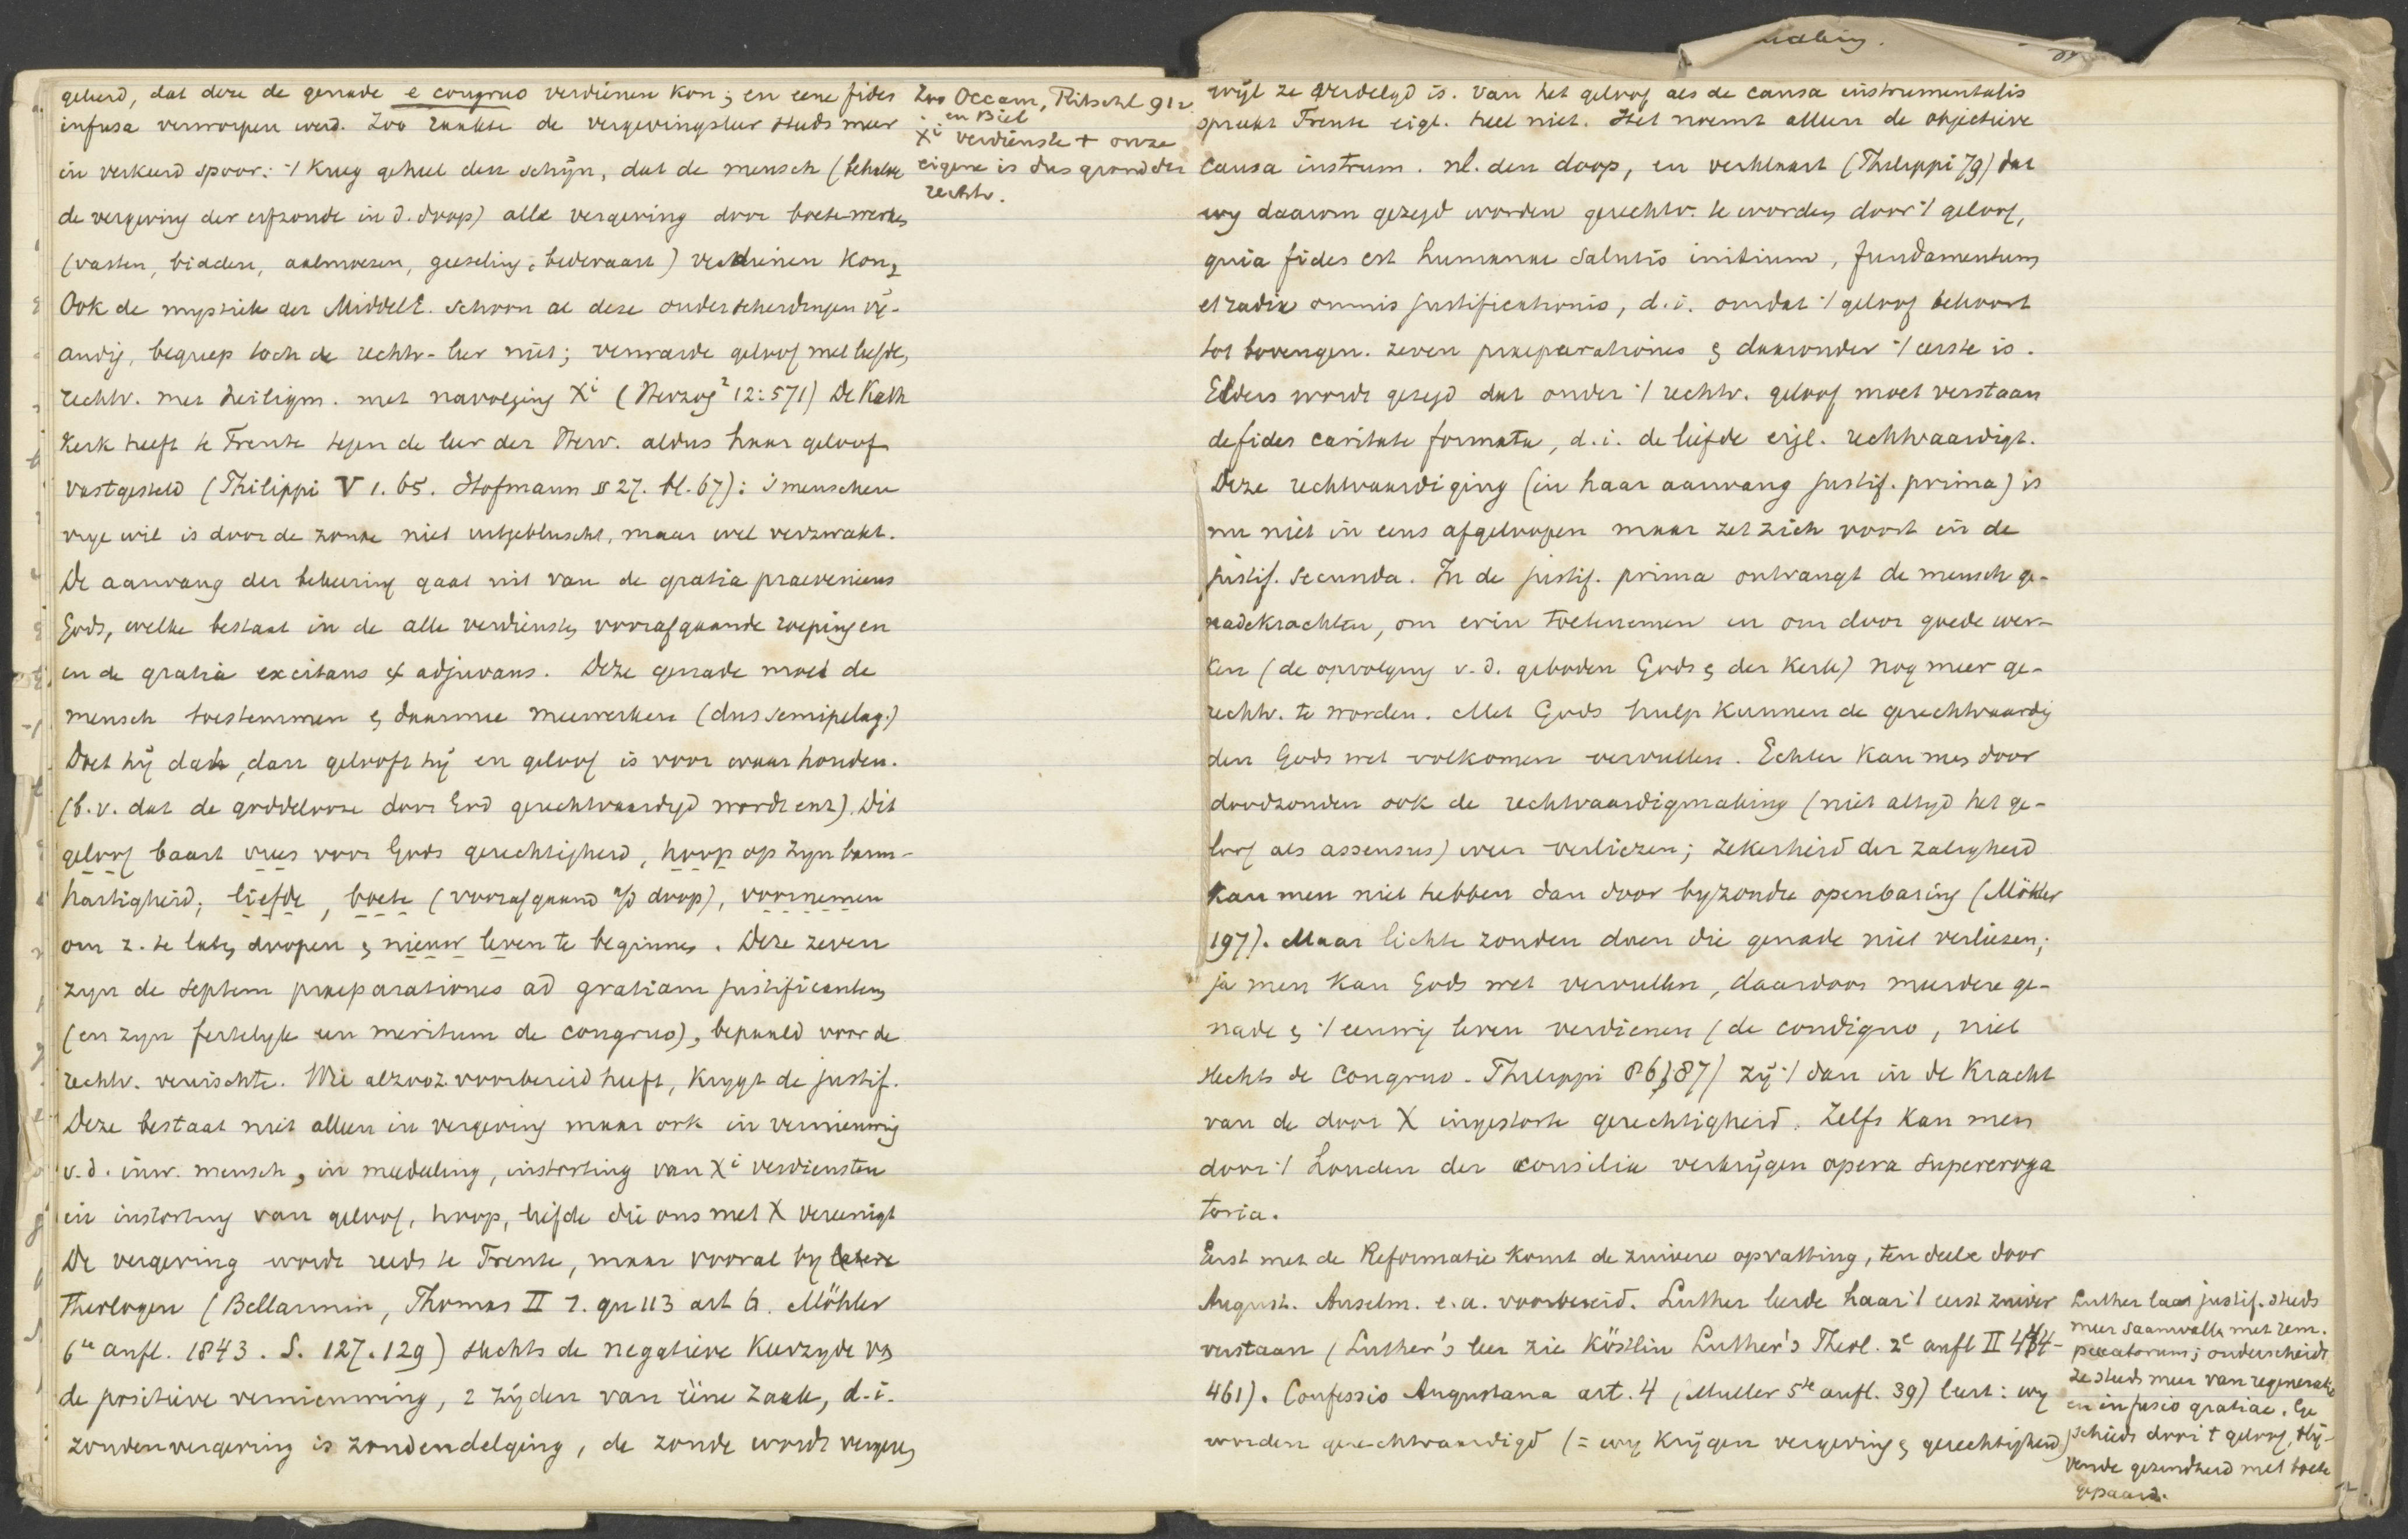 geleerd, dat deze de genade e congruo verdienen kon; en eene fides
infusa verworpen werd. Zoo raakte de vergevingsleer steeds meer
in verkeerd spoor: 't kreeg geheel den schijn, dat de mensch (behalve
de vergeving der erfzonde in d. doop) alle vergeving door boetewerken
(vasten, bidden, aalmoezen, geeseling, bedevaart) verdienen kon,
Ook de mystiek der MiddelE. schoon al deze onderscheidingen vij-
andig, begreep toch de rechtv-leer niet; verwarde geloof met liefde,
rechtv. met heiligm. met navolging Xi (Herzog² 12:571) De Kath
Kerk heeft te Trente tegen de leer der Herv. aldus haar geloof
vastgesteld (Philippi V 1. 65. Hofmann § 27. bl. 67): 's menschen
vrije wil is door de zonde niet uitgebluscht, maar wel verzwakt.
De aanvang der bekeering gaat uit van de gratia praeveniens
Gods, welke bestaat in de alle verdiensten voorafgaande roeping en
en de gratia excitans et adjuvans. Deze genade moet de
mensch toestemmen & daarmee meewerken (dus semipelag.)
Doet hij dat, dan gelooft hij en geloof is voor waar houden.
(b.v. dat de goddelooze door God gerechtvaardigd wordt enz). Dit
geloof baart vrees voor Gods gerechtigheid, hoop op zijn barm-
hartigheid, liefde, boete (voorafgaand a/d doop), voornemen
om z. te laten doopen & nieuw leven te beginnen. Deze zeven
zijn de septem praeparationes ad gratiam justificantem
(en zijn feitelijk een meritum de congruo), bepaald voor de
rechtv. vereischte. Wie alzoo z. voorbereid heeft, krijgt de justif.
Deze bestaat niet alleen in vergeving maar ook in vernieuwing
v.d. inw. mensch, in mededeeling, instorting van Xi verdiensten
in instorting van geloof, hoop, liefde die ons met X vereenigt
De vergeving wordt reeds te Trente, maar vooral bij latere
Theologen (Bellarmin, Thomas II 1. qu 113 art 6. Möhler
6te aufl. 1843. S. 127. 129) slechts de negatieve keerzijde v
de positieve vernieuwing, 2 zijden van ééne zaak, d.i.
zondenvergeving is zondendelging, de zonde wordt vergeven
Zoo Occam, Ritschl 91
en Biel
Xi verdienste + onze
eigene is dus grond der
rechtv.
wijl ze verdelgd is. Van het geloof als de causa instrumentalis
spreekt Trente eigl. heel niet. Het noemt alleen de objectieve
causa instrum. nl. den doop, en verklaart (Philippi 79) dat
wij daarom gezegd worden gerechtv. te worden door 't geloof,
quia fides est humanae salutis initium, fundamentum
et radix omnis justificationis, d.i. omdat 't geloof behoort
tot bovengen. zeven praeparationes & daaronder 't eerste is.
Elders wordt gezegd dat onder 't rechtv. geloof moet verstaan
de fides caritate formata, d.i. de liefde eigl. rechtvaardigt.
Deze rechtvaardiging (in haar aanvang justif. prima) is
nu niet in eens afgeloopen maar zet zich voort in de
justif. secunda. In de justif. prima ontvangt de mensch ge-
nadekrachten, om erin toetenemen en om door goede wer-
ken (de opvolging v.d. geboden Gods & der Kerk) nog meer ge-
rechtv. te worden. Met Gods hulp kunnen de gerechtvaardig
den Gods wet volkomen vervullen. Echter kan men door
doodzonden ook de rechtvaardigmaking (niet altijd het ge-
loof als assensus) weer verliezen; zekerheid der zaligheid
kan men niet hebben dan door bijzondre openbaring (Möhler
197). Maar lichte zonden doen die genade niet verliezen;
ja men kan Gods wet vervullen, daardoor meerdere ge-
nade & 't eeuwig leven verdienen (de condigno, niet
slechts de congruo. Philippi 86, 87) zij 't dan in de kracht
van de door X ingestorte gerechtigheid. Zelfs kan men
door 't houden der consilia verkrijgen opera supereroga
toria.
Eerst met de Reformatie komt de zuivere opvatting, ten deele door
August. Anselm. e.a. voorbereid. Luther leerde haar 't eerst zuiver
verstaan (Luther's leer zie Köstlin Luther's Theol. 2e aufl II 444-
461). Confessio Augustana art. 4 (Muller 5te aufl. 39) leert: wij
worden gerechtvaardigd (= wij krijgen vergeving & gerechtigheid)
Luther laat justif. steeds
meer saamvallen met rem.
peccatorum; onderscheidt
ze steeds meer van regeneratie
en infusio gratiae. Ge
schiedt door 't geloof, blij-
vende gezindheid met boete
gepaard.